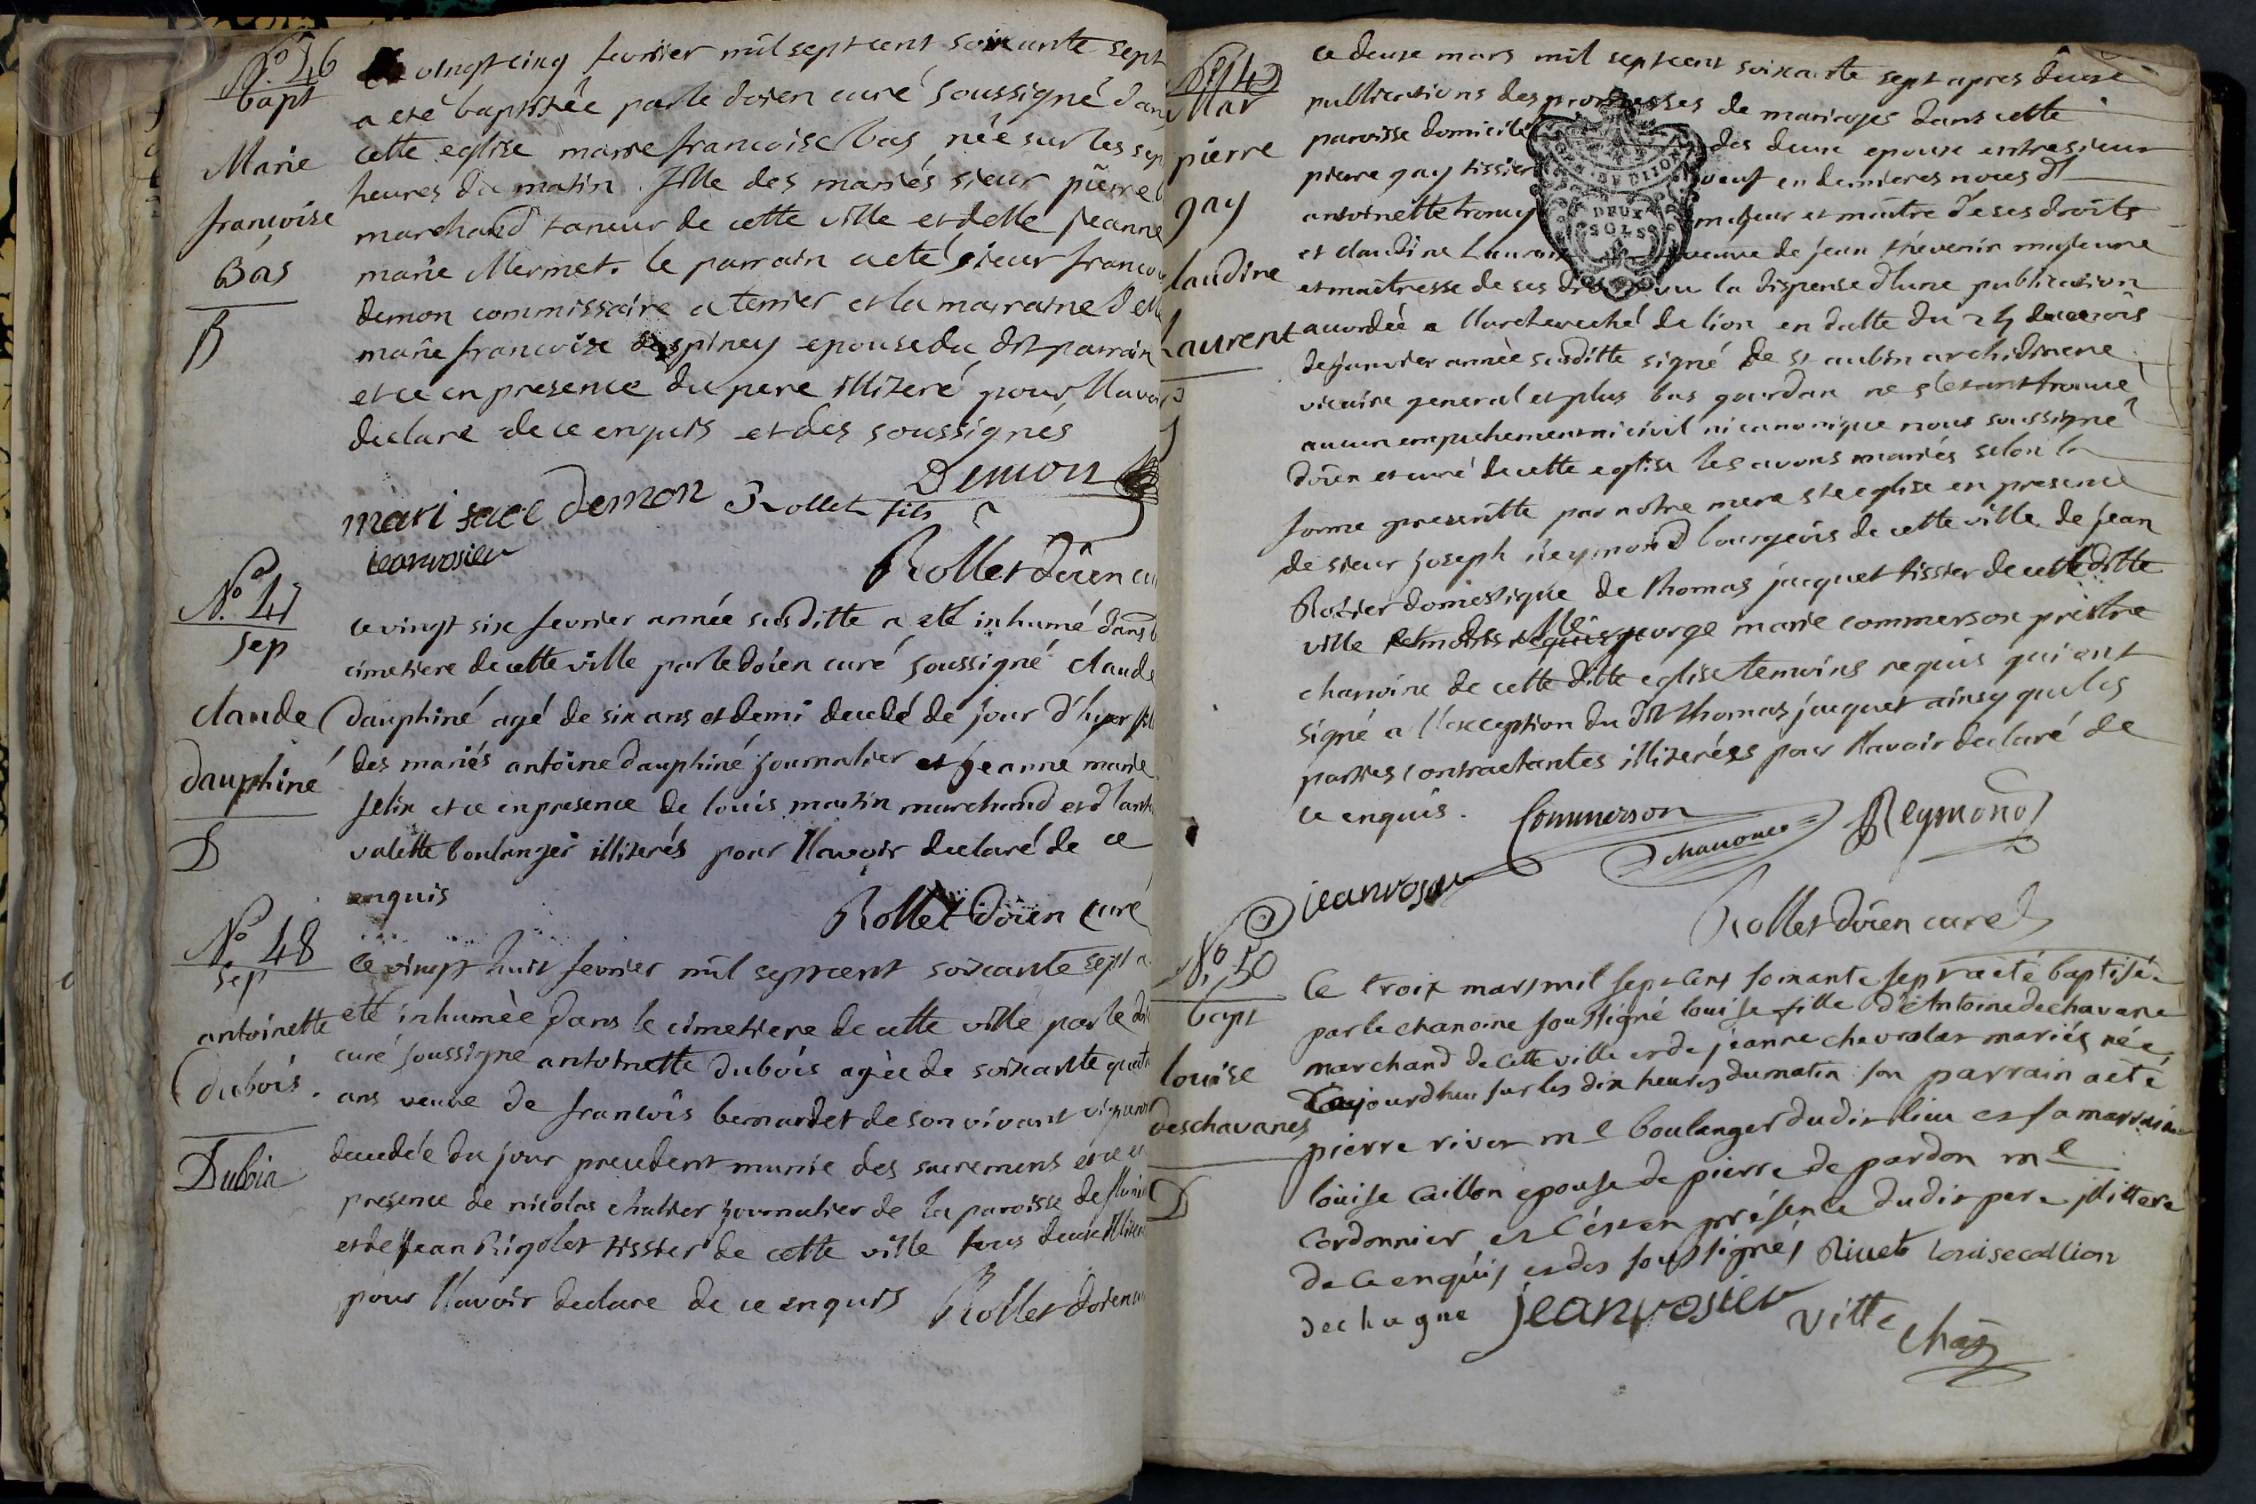 N.o 46
bapt
Marie
françoise
Bas
B
vingt cinq fevrier mil sept cent soixante sept
a eté baptisée par le doïen curé soussigné dans
cette eglise marie francoise bas née sur les sep
heures du matin. fille des mariés sieur pierre b
marchand taneur de cette ville et delle jeanne
marie Mermet. le parrain a eté sieur francois
demon commissaire a terrier et la marraine delle
marie francoise despiney epouse du dit parrain
et ce en presence du pere illiteré pour l'lavoir
declaré de ce enquis et des soussignés
Demon
mari demon Rollet fils
jeanrosier
Rollet doïen cu
N.o 47
sep
claude
dauphiné
D
ce vingt six fevrier année susditte a eté inhumé dans le
cimetiere de cette ville par le doïen curé soussigné claude
dauphiné agé de six ans et demi decedé de jour d'hyer fils
des mariés antoine dauphiné journalier et jeanne marie
felix et ce en presence de louis martin marchand et d'anto
valette boulanger illiterés pour l'lavoir declaré de ce
enquis
Rollet doïen curé
N.o 48
sep
antoinette
dubois.
Dubia
ce vingt huit fevrier mil sept cent soixante sept a
eté inhumée dans le cimetiere de cette ville par le doï
curé soussigné antoinette dubois agée de soixante quatr
ans veuve de francois bernardet de son vivant vigneron
decedée du jour precedent munie des sacremens et ce en
presence de nicolas chalier journalier de la paroisse de
et de jean Rigolet tissier de cette ville tous deux illiter
pour l'lavoir declaré de ce enquis Rollet doïen cu
No 49
Mar
pierre
gay
laudine
Laurent
ce deuxe mars mil sept cent soixante sept apres deuxe
publications des promesses de mariages dans cette
paroisse domicile des deux epoux entre sieur
pierre gay tissier veuf en dernieres noces d'
antoinette troncy majeur et maître de ses droits
et claudine Lauren veuve de jean thevenin majeure
et maîtresse de ses droits vu la dispense d'lune publication
accordée a l'larcheveché de lion en datte du
de janvier année susditte signé de st aubin archidiacre
vicaire general et plus bas gourdan ne s'letant trouvé
aucun empechement ni civil ni canonique nous soussigné
doïen et curé de cette eglise les avons mariés selon la
forme prescritte par notre mere ste eglise en presence
de sieur joseph Reymond bourgeois de cette ville de jean
Rosier domestique de thomas jacquet tissier de cette ditte
ville george marie commerson prestre
chanoine de cette ditte eglise temoins requis qui ont
signé a l'lexception du dit thomas jacquet ainsy que les
parties contractantes illiterées pour l'lavoir declaré de
ce enquis. Commerson chanoine Reymond
jeanrosier
Rollet doïen curé
N.o 50
bapt
louise
deschavanes
D
Ce troix mars mil sept cent soixante sept a été baptisé
par le chanoine soussigné louise fille d'Antoine dechavane
marchand de cette ville et de jeanne chevrolat mariés née
aujourdhui sur les dix heures du matin son parrain a eté
pierre rivet m.l boulanger dudit lieu et sa marraine
loüise caillon epouse de pierre de pardon m.e
cordonnier et c'est en présence dudit pere illittere
de ce enquis et des soussignés Rivet louise callion
dechagne jeanrosier Vitte chan